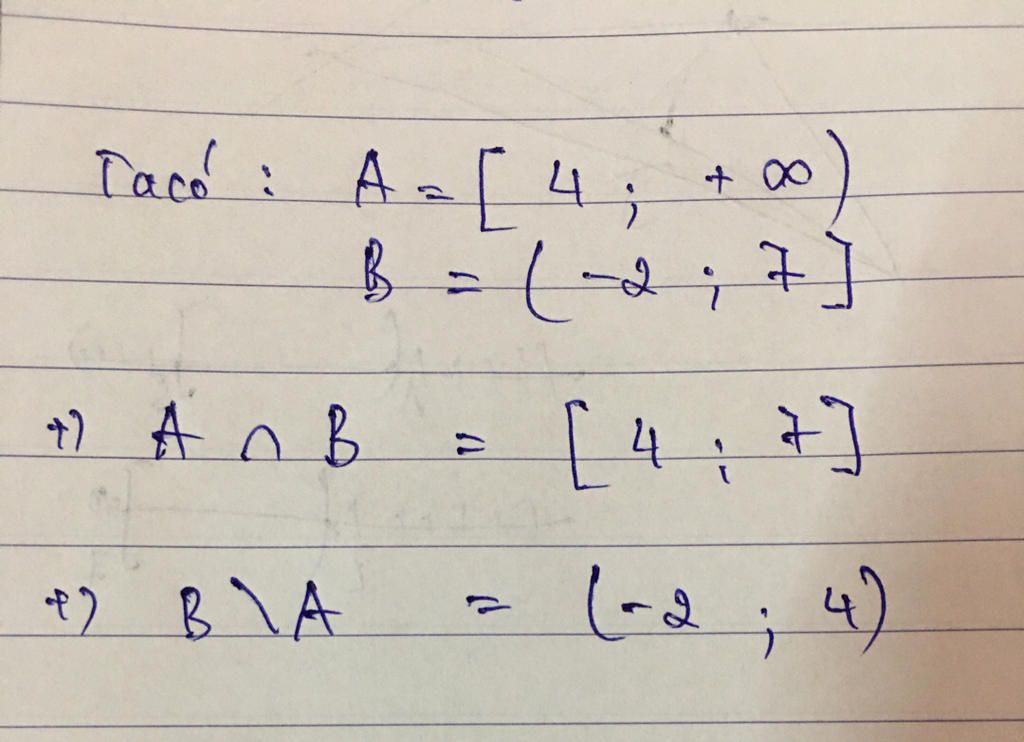 Ta có : A = [ 4 ; + ∞ )
B = ( -2 ; 7 ]
+) A ∩ B = [ 4 ; 7 ]
+) B \ A = ( -2 ; 4 )